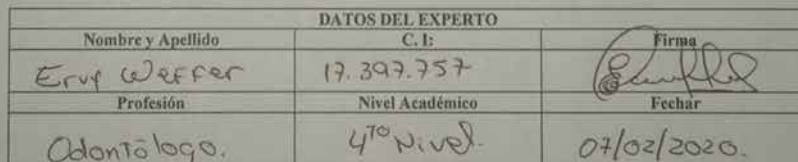 DATOS DEL EXPERTO
Nombre y Apellido C. I: Firma
17.397.757
Profesión Nivel Académico Fechar
Odontólogo. 4TO Nivel. 07/02/2020.